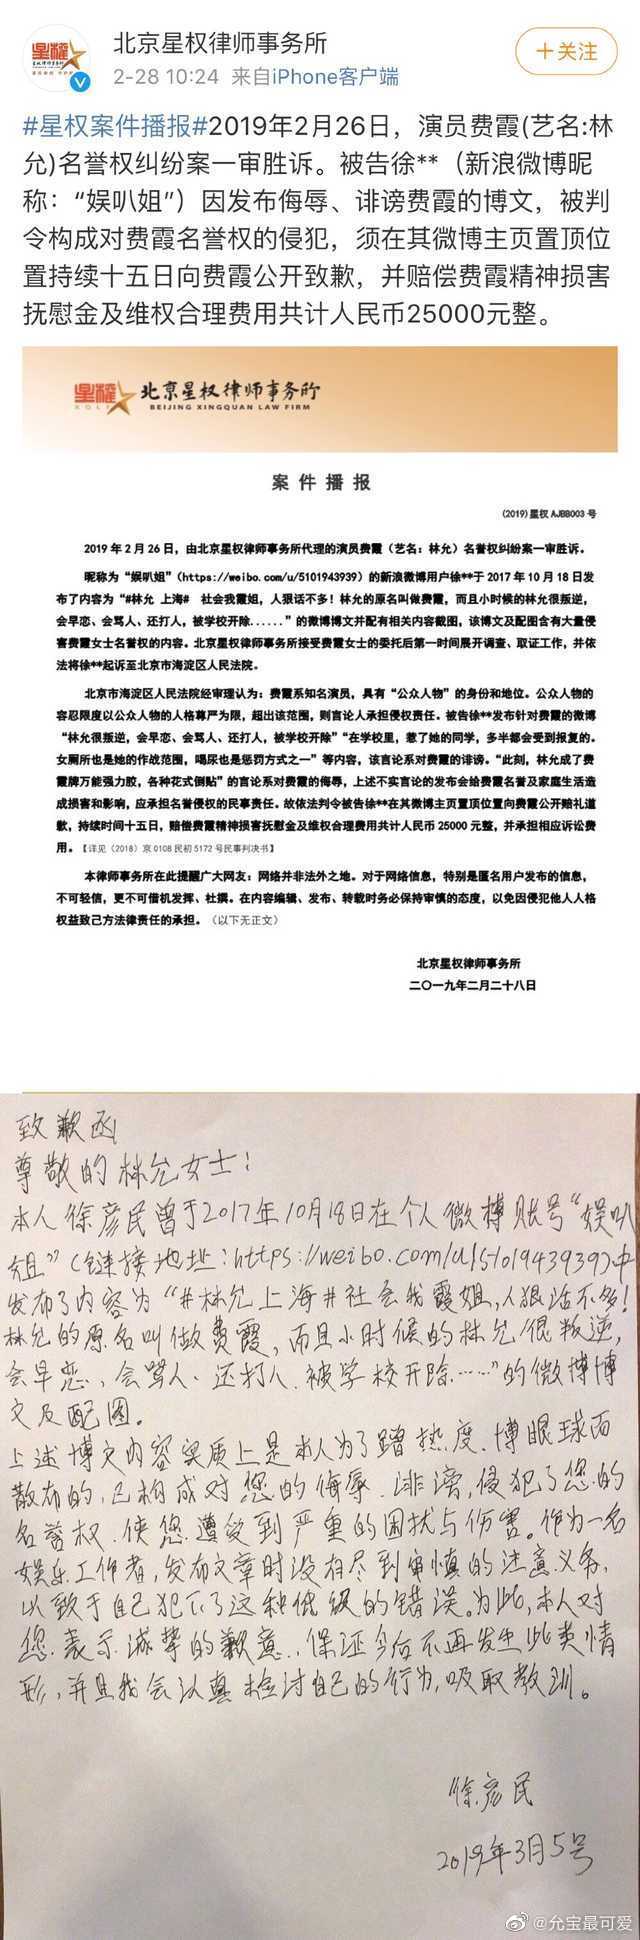 星權
北京星权律师事务所
2-28 10:24 来自iPhone客户端
+关注
#星权案件播报#2019年2月26日，演员费霞(艺名:林
允)名誉权纠纷案一审胜诉。被告徐**（新浪微博昵
称：“娱叭姐”）因发布侮辱、诽谤费霞的博文，被判
令构成对费霞名誉权的侵犯，须在其微博主页置顶位
置持续十五日向费霞公开致歉，并赔偿费霞精神损害
抚慰金及维权合理费用共计人民币25000元整。
星權 北京星权律师事务所
BEIJING XINGQUAN LAW FIRM
案 件 播 报
(2019)星权 AJBB003 号
2019 年 2 月 26 日，由北京星权律师事务所代理的演员费霞（艺名：林允）名誉权纠纷案一审胜诉。
昵称为“娱叭姐”（https://weibo.com/u/5101943939）的新浪微博用户徐**于 2017 年 10 月 18 日发
布了内容为“#林允 上海# 社会我霞姐，人狠话不多！林允的原名叫做费霞，而且小时候的林允很叛逆，
会早恋、会骂人、还打人，被学校开除......”的微博博文并配有相关内容截图，该博文及配图含有大量侵
害费霞女士名誉权的内容。北京星权律师事务所接受费霞女士的委托后第一时间展开调查、取证工作，并依
法将徐**起诉至北京市海淀区人民法院。
北京市海淀区人民法院经审理认为：费霞系知名演员，具有“公众人物”的身份和地位。公众人物的
容忍限度以公众人物的人格尊严为限，超出该范围，则言论人承担侵权责任。被告徐**发布针对费霞的微博
“林允很叛逆，会早恋、会骂人、还打人，被学校开除”“在学校里，惹了她的同学，多半都会受到报复的。
女厕所也是她的作战范围，喝尿也是惩罚方式之一”等内容，该言论系对费霞的诽谤。“此刻，林允成了费
霞牌万能强力胶，各种花式倒贴”的言论系对费霞的侮辱，上述不实言论的发布会给费霞名誉及家庭生活造
成损害和影响，应承担名誉侵权的民事责任。故依法判令被告徐**在其微博主页置顶位置向费霞公开赔礼道
歉，持续时间十五日，赔偿费霞精神损害抚慰金及维权合理费用共计人民币 25000 元整，并承担相应诉讼费
用。【详见（2018）京 0108 民初 5172 号民事判决书】
本律师事务所在此提醒广大网友：网络并非法外之地。对于网络信息，特别是匿名用户发布的信息，
不可轻信，更不可借机发挥、杜撰。在内容编辑、发布、转载时务必保持审慎的态度，以免因侵犯他人人格
权益致己方法律责任的承担。（以下无正文）
北京星权律师事务所
二〇一九年二月二十八日
致歉函
尊敬的林允女士！
本人徐彦民曾于2017年10月18日在个人微博账号“娱叭
姐”（链接地址：https://weibo.com/u/5101943939）中
发布了内容为“#林允上海#社会我霞姐,人狠话不多！
林允的原名叫做费霞，而且小时候的林允很叛逆，
会早恋、会骂人、还打人、被学校开除……”的微博博
文及配图。
上述博文内容实质上是本人为了蹭热度、博眼球而
散布的，已构成对您的侮辱、诽谤，侵犯了您的
名誉权，使您遭受到严重的困扰与伤害。作为一名
娱乐工作者，发布文章时没有尽到审慎的注意义务，
以致于自己犯下了这种低级的错误。为此，本人对
您表示诚挚的歉意，保证今后不再发生此类情
形，并且我会认真检讨自己的行为，吸取教训。
徐彦民
2019年3月5号
@允宝最可爱